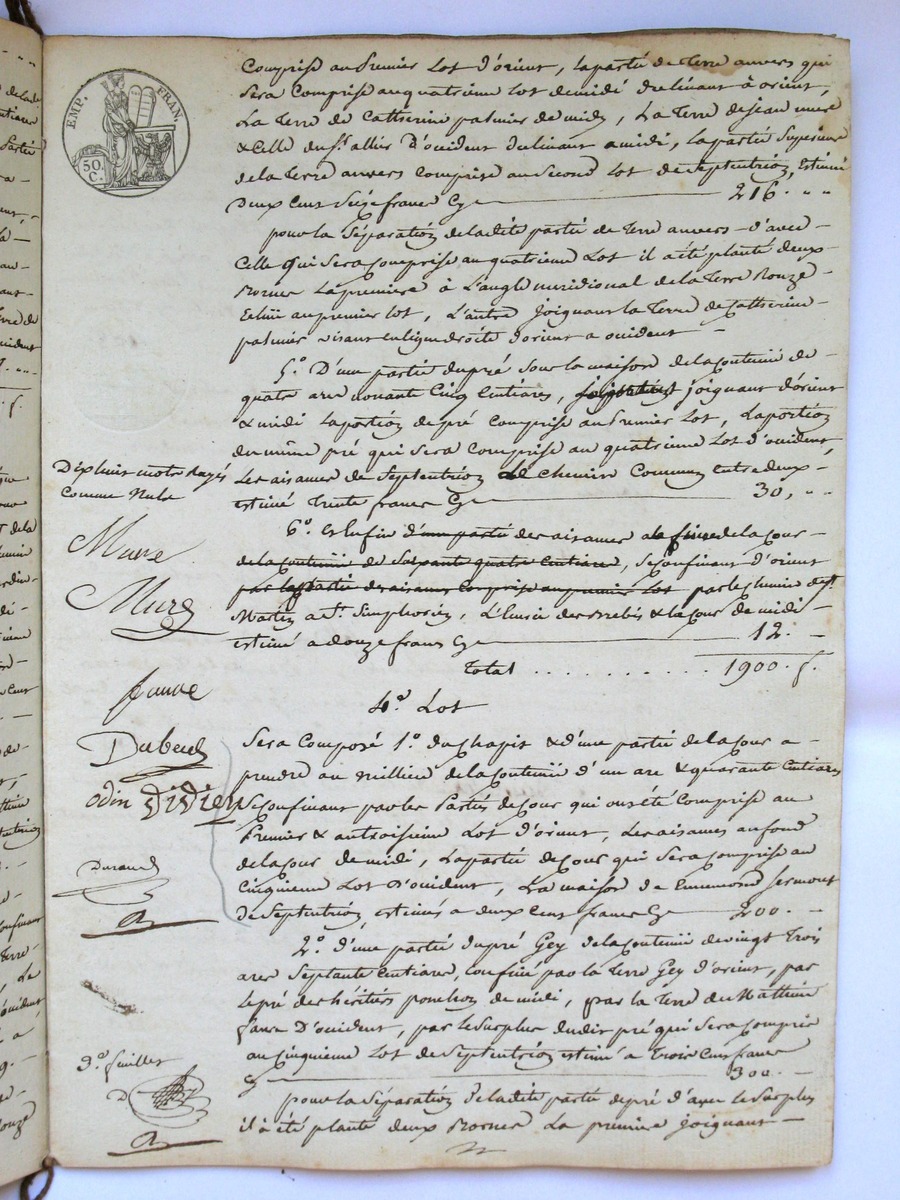 EMP. FRAN.
50. C.
Comprise au Premier Lot d'orient, la partie de Terre anvers qui
Sera Comprise au quatrieme Lot de midi declinant à orient,
La Terre de Catherine palmier de midy, La Terre de jean mure
& Celle du Sr. allier D'occident declinant a midi, la partie Superieure
de la Terre anvers Comprise au Second Lot de Septentrion, Estimée
Deux Cent Seize francs Cy 216. " "
pour la Séparation de ladite partie de Terre anvers d'avec
Celle qui Sera Comprise au quatrieme Lot il a été planté deux
Bornes La premiere à L'angle meridional de la Terre Rouze
Echue au premier lot, L'autre joignant la Terre de Catherine
palmier visant en ligne droite d'orient a occident
5.° D'une partie du pré Sous la maison de la Contenue de
quatre ares nonante Cinq Centiares, joignant d'orient
& midi La portion de pré Comprise au Premier Lot, La portion
du même pré qui Sera Comprise au quatrieme Lot d'occident,
Les aisances de Septentrion Le Chemin Commun entre deux
estimé Trente francs Cy 30, " "
6.° et Enfin d'une partie des aisances a la fin de la Cour
de la Contenue de Soixante quatre Centiares, Se Confinant d'orient
par la partie des aisances Comprise au premier Lot par le Chemin de St.
Martin a St. Simphorien, L'Ecurie des Brebis & la Cour de midi
estimé a douze francs Cy 12. —
Total . . . . . . . . . . . 1900. f.
4.° Lot
Sera Composé 1.° du Chapit & d'une partie de la Cour a
prendre au millieu de la Contenue d'un are & quarante Centiares
Se Confinant par les Parties de Cour qui ont été Comprise au
Premier & au troisieme Lot d'orient, Les aisances au fond
de la Cour de midi, La partie de Cour qui Sera Comprise au
Cinquieme Lot D'occident, La maison de Emmond
de Septentrion, estimés a deux Cent francs Cy 200. —
2.° d'une partie du pré Gey de la Contenue de vingt Trois
ares Septante Centiares, Confiné par la Terre Gey d'orient, par
Le pré des héritiers ponchon de midi, par la Terre de Mathieu
faure D'occident, par le Surplus dudit pré qui Sera Compris
au Cinquieme Lot de Septentrion estimé a Trois Cent francs
Cy 300. —
pour la Séparation de ladite partie de pré d'avec le Surplus
il a été planté deux Bornes La premiere joignant
Dix huit mots Rayés
Comme Nuls
Mure
Mure
faure
Dubeuf
odin Didier
Durand
3.° feuillet
D